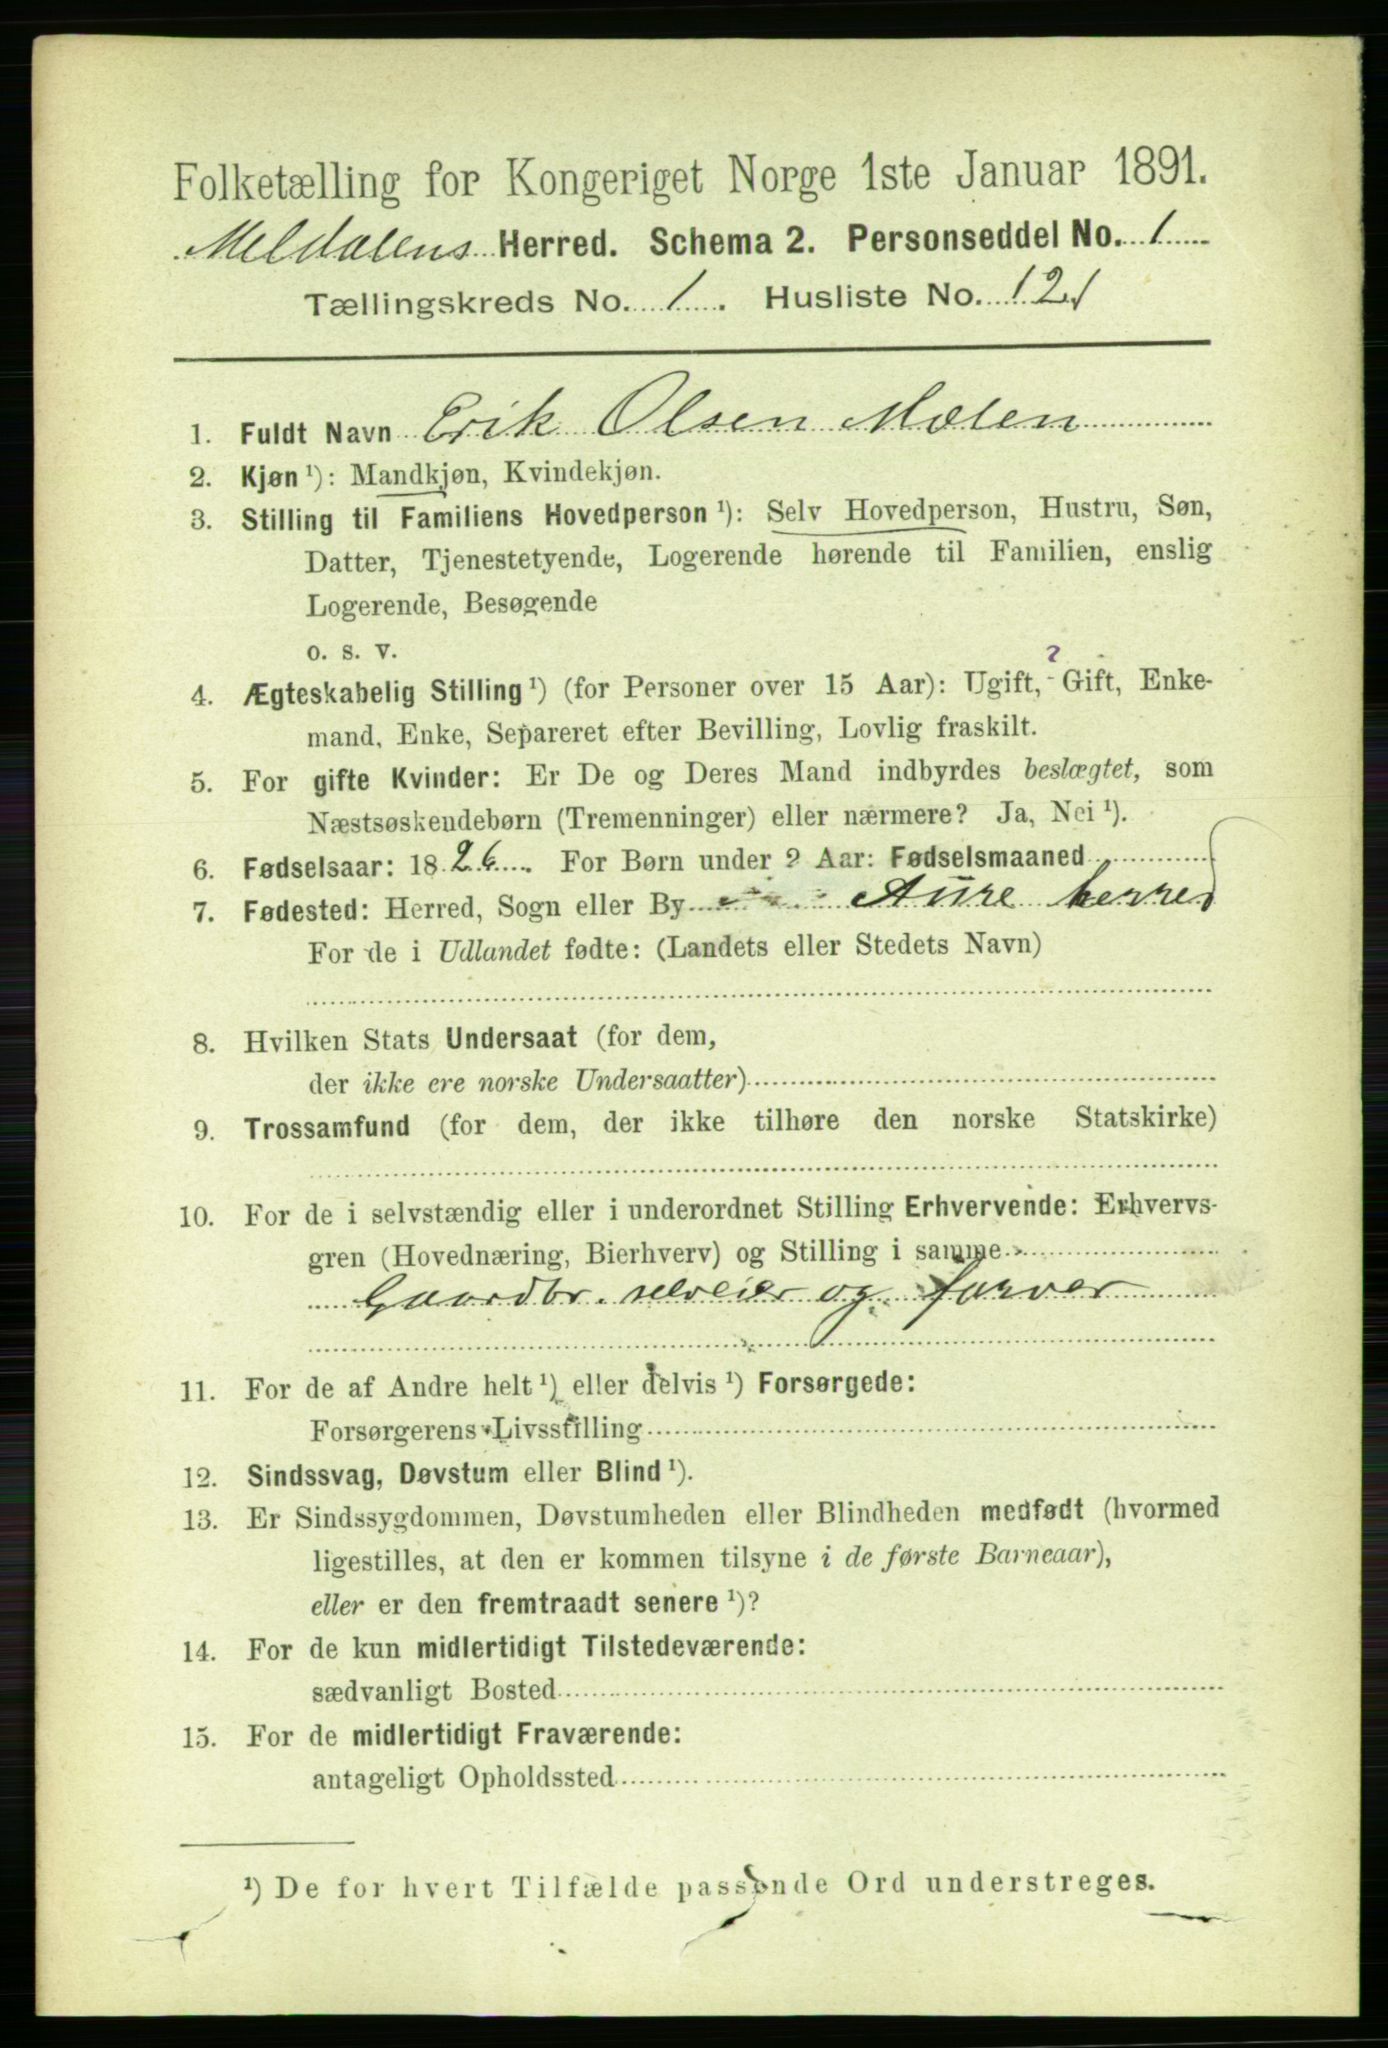 Folketælling for Kongeriget Norge 1ste Januar 1891.
Meldalens Herred. Schema 2. Personseddel No. 1
Tællingskreds No. 1. Husliste No. 121
1. Fuldt Navn Erik Olsen Molen
2. Kjøn ¹): Mandkjøn, Kvindekjøn.
3. Stilling til Familiens Hovedperson ¹): Selv Hovedperson, Hustru, Søn,
Datter, Tjenestetyende, Logerende hørende til Familien, enslig
Logerende, Besøgende
o. s. v.
?
4. Ægteskabelig Stilling ¹) (for Personer over 15 Aar): Ugift, Gift, Enke-
mand, Enke, Separeret efter Bevilling, Lovlig fraskilt.
5. For gifte Kvinder: Er De og Deres Mand indbyrdes beslægtet, som
Næstsøskendebørn (Tremenninger) eller nærmere? Ja, Nei ¹).
6. Fødselsaar: 1826. For Børn under 2 Aar: Fødselsmaaned
7. Fødested: Herred, Sogn eller By Aure herred
For de i Udlandet fødte: (Landets eller Stedets Navn)
8. Hvilken Stats Undersaat (for dem,
der ikke ere norske Undersaatter)
9. Trossamfund (for dem, der ikke tilhøre den norske Statskirke)
10. For de i selvstændig eller i underordnet Stilling Erhvervende: Erhvervs-
gren (Hovednæring, Bierhverv) og Stilling i samme
Gaardbr. selveier og farver
11. For de af Andre helt ¹) eller delvis ¹) Forsørgede:
Forsørgerens Livsstilling
12. Sindssvag, Døvstum eller Blind ¹).
13. Er Sindssygdommen, Døvstumheden eller Blindheden medfødt (hvormed
ligestilles, at den er kommen tilsyne i de første Barneaar),
eller er den fremtraadt senere ¹)?
14. For de kun midlertidigt Tilstedeværende:
sædvanligt Bosted
15. For de midlertidigt Fraværende:
antageligt Opholdssted
¹) De for hvert Tilfælde passende Ord understreges.